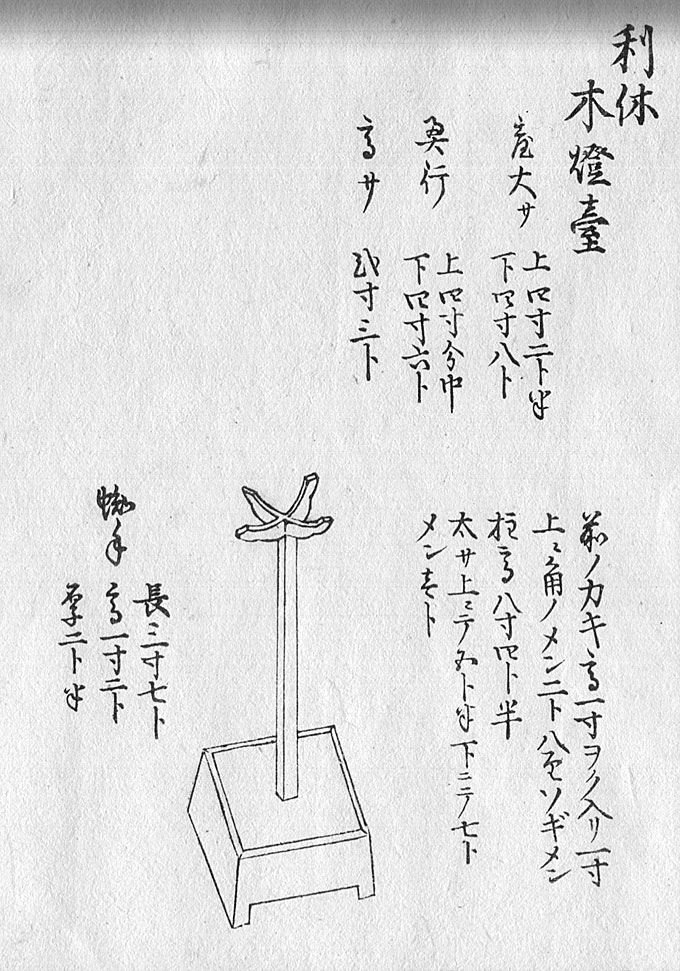 利休
木燈臺
臺大サ
上四寸二卜半
下四寸八卜
奥行
上四寸分中
下四寸六卜
高サ
弐寸三卜
前ノカキ高一寸ヲク入リ一寸
上ミ角ノメン二卜八厘ソギメン
柱高八寸四卜半
太サ上ニテ五卜半下ニテ七卜
メン壱卜
蜘手
長三寸七卜
高一寸二卜
厚二卜半